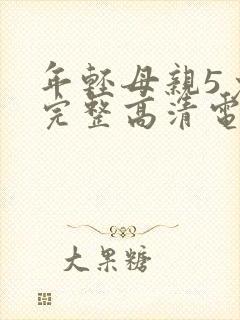 年輕母親5
完整高清電
大果糖